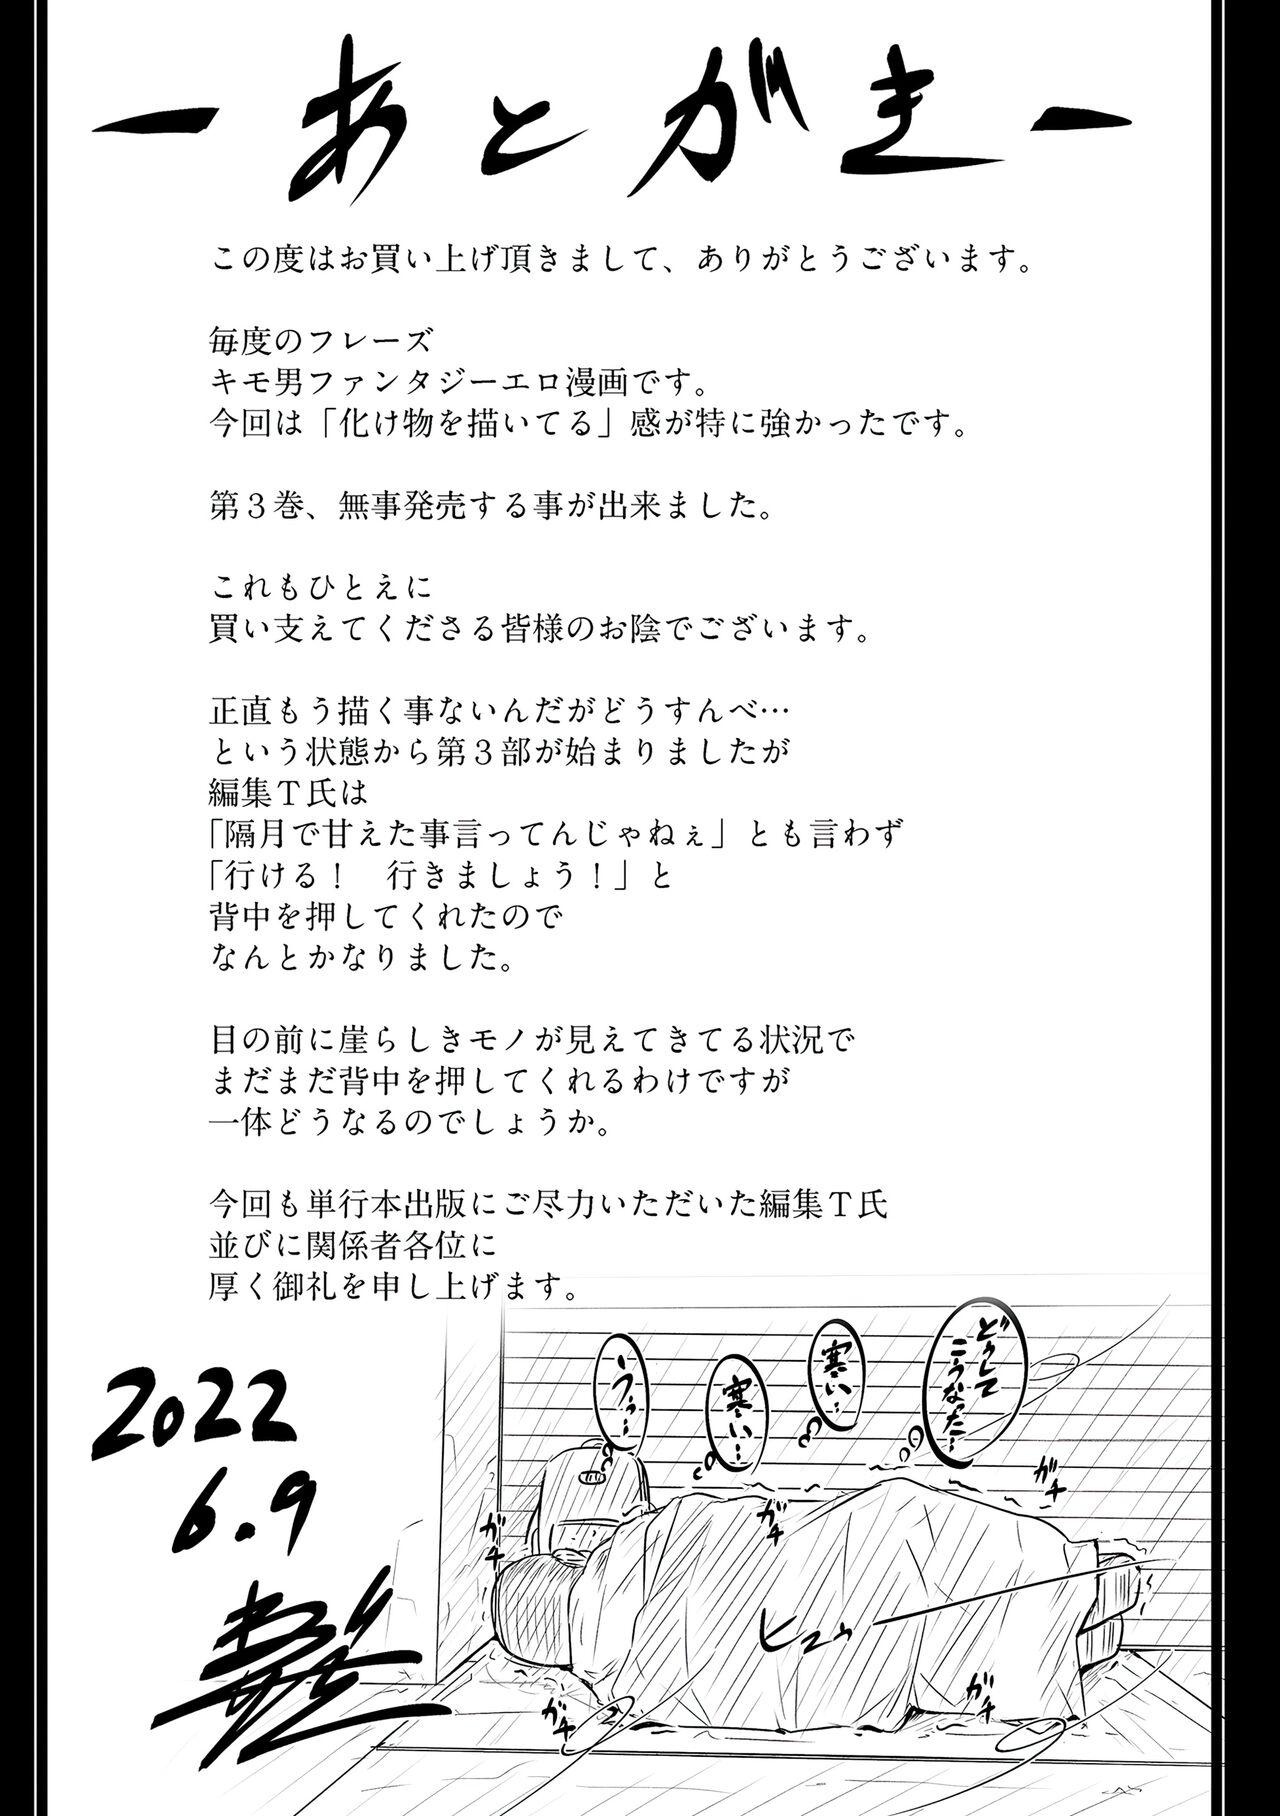 －あとがき－
この度はお買い上げ頂きまして、ありがとうございます。
毎度のフレーズ
キモ男ファンタジーエロ漫画です。
今回は「化け物を描いてる」感が特に強かったです。
第３巻、無事発売する事が出来ました。
これもひとえに
買い支えてくださる皆様のお陰でございます。
正直もう描く事ないんだがどうすんべ…
という状態から第３部が始まりましたが
編集Ｔ氏は
「隔月で甘えた事言ってんじゃねぇ」とも言わず
「行ける！　行きましょう！」と
背中を押してくれたので
なんとかなりました。
目の前に崖らしきモノが見えてきてる状況で
まだまだ背中を押してくれるわけですが
一体どうなるのでしょうか。
今回も単行本出版にご尽力いただいた編集Ｔ氏
並びに関係者各位に
厚く御礼を申し上げます。
どうして
こうなった…
寒い…
寒い…
ううっ…
ガチ
ガチ
ヒュゥ
ガチ
ガチ
2022
6.9